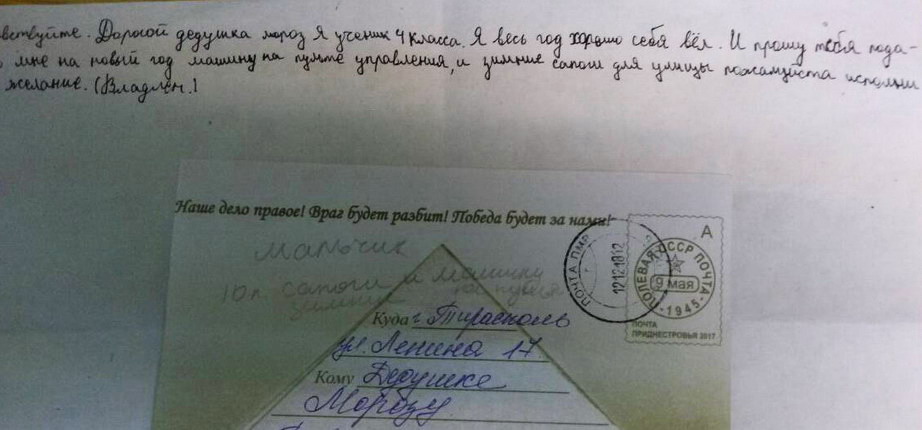 вствуйте. Дорогой дедушка мороз я ученик 4 класса. Я весь год хорошо себя вёл. И прошу тебя пода-
мне на новый год машину на пумте управления, и зимние сапоги для улицы пожамуйста исполни
желание. (Владлен.)
Наше дело правое! Враг будет разбит! Победа будет за нами!
мальчик
10л. сапоги и машинку
зимние на пульте
Куда г. Тирасполь
ул. Ленина 17
Кому Дедушке
Морозу
ПОЧТА ПМР
121218 12
А
ПОЛЕВАЯ СССР ПОЧТА
9 мая
1945
ПОЧТА
ПРИДНЕСТРОВЬЯ 2017